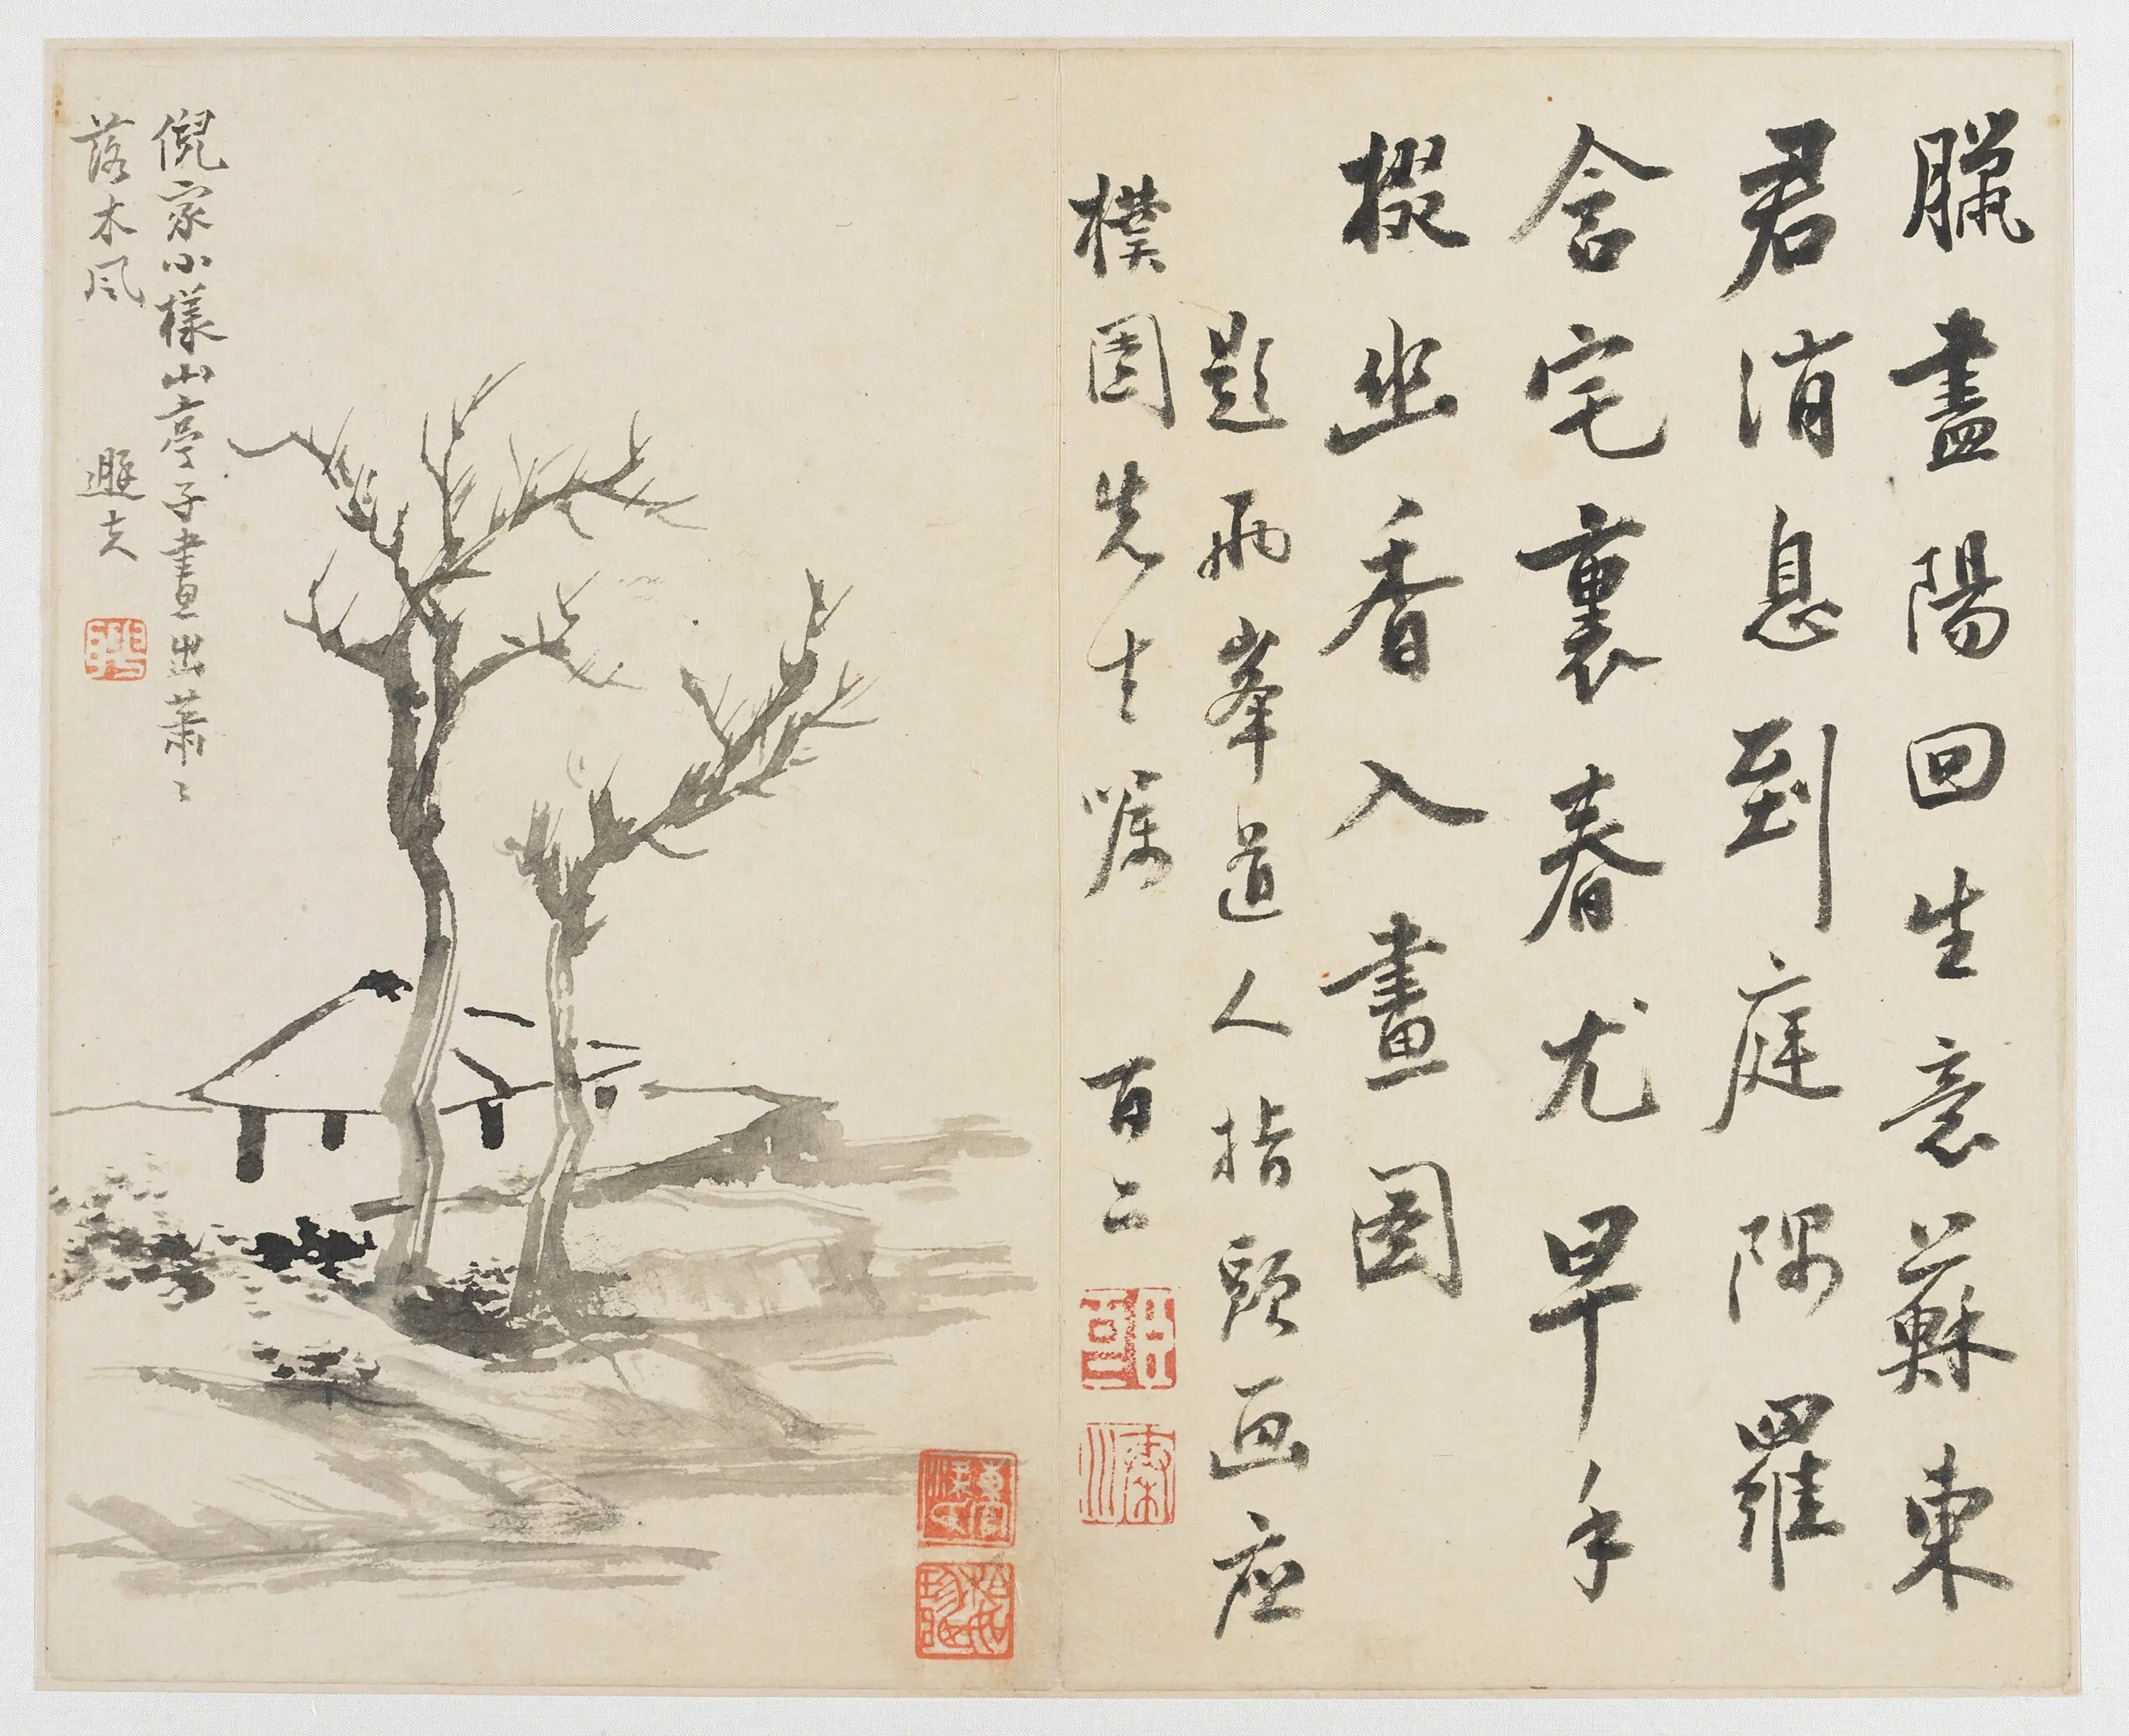 臘盡陽回生意蘇東
君消息到庭隅羅
含宅裏春尤早手
掇幽香入畫圖
題兩峯道人指頭画應
樸園先生囑 百二
倪家小樣山亭子畫出蕭〻
落木风 遯夫